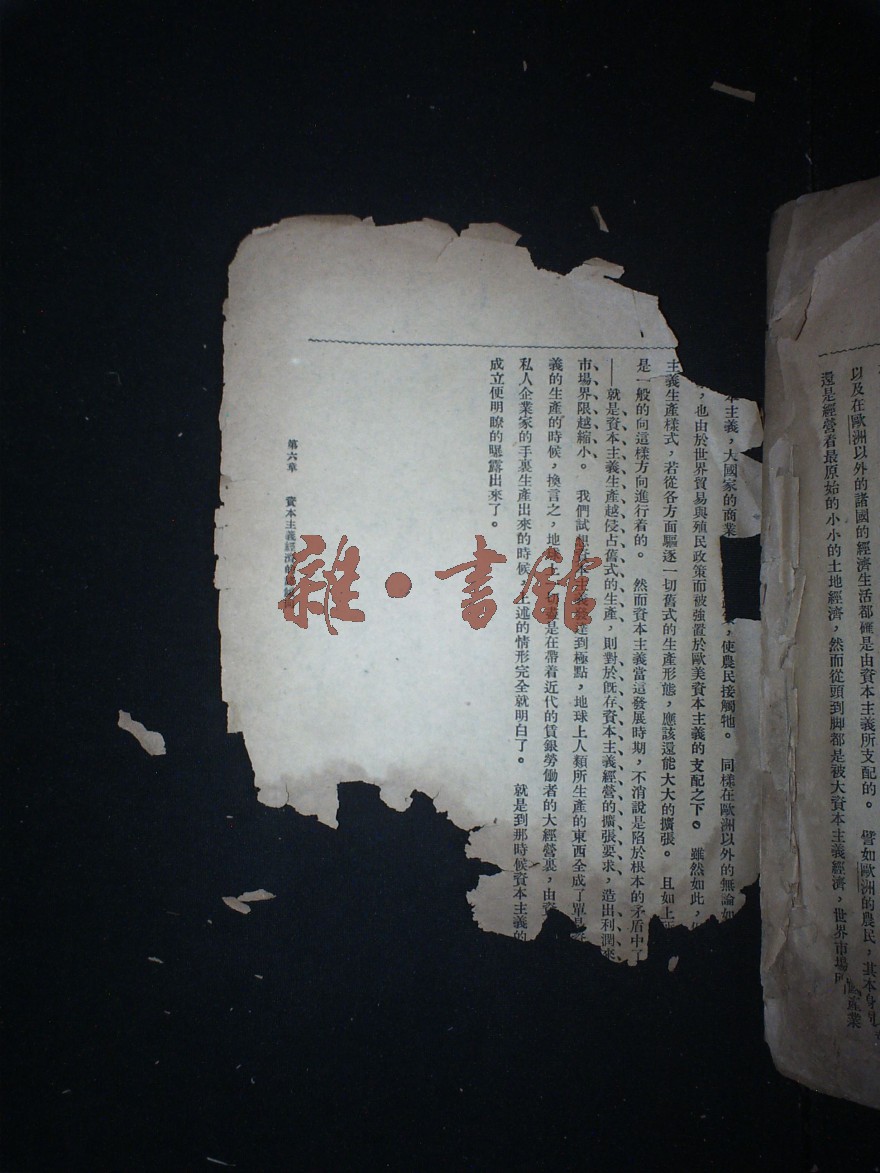 以及在歐洲以外的諸國的經濟生活都確是由資本主義所支配的。 譬如歐洲的農民,其本身
還是經營着最原始的小小的土地經濟,然而從頭到脚都是被大資本主義經濟,世界市場
本主義,大國家的商業 使農民接觸牠。 同樣在歐洲以外的無論如
,也由於世界貿易與殖民政策而被強置於歐美資本主義的支配之下。 雖然如此,
主義生產樣式,若從各方面驅逐一切舊式的生產形態,應該還能大大的擴張。 且如上
是一般的向這樣方向進行着的。 然而資本主義當這發展時期,不消說是陷於根本的矛盾中了
——就是資本主義生產越侵占舊式的生產,則對於旣存資本主義經營的擴張要求,造出利潤來
市場界限越縮小。 我們試想資本主義發達到極點,地球上人類所生產的東西全成了單是資
義的生產的時候,換言之,地球上一切盡是在帶着近代的賃銀勞働者的大經營裏,由資
私人企業家的手裏生產出來的時候,上述的情形完全就明白了。 就是到那時候資本主義的
成立便明瞭的曝露出來了。
第六章 資本主義經濟的
雜·書館